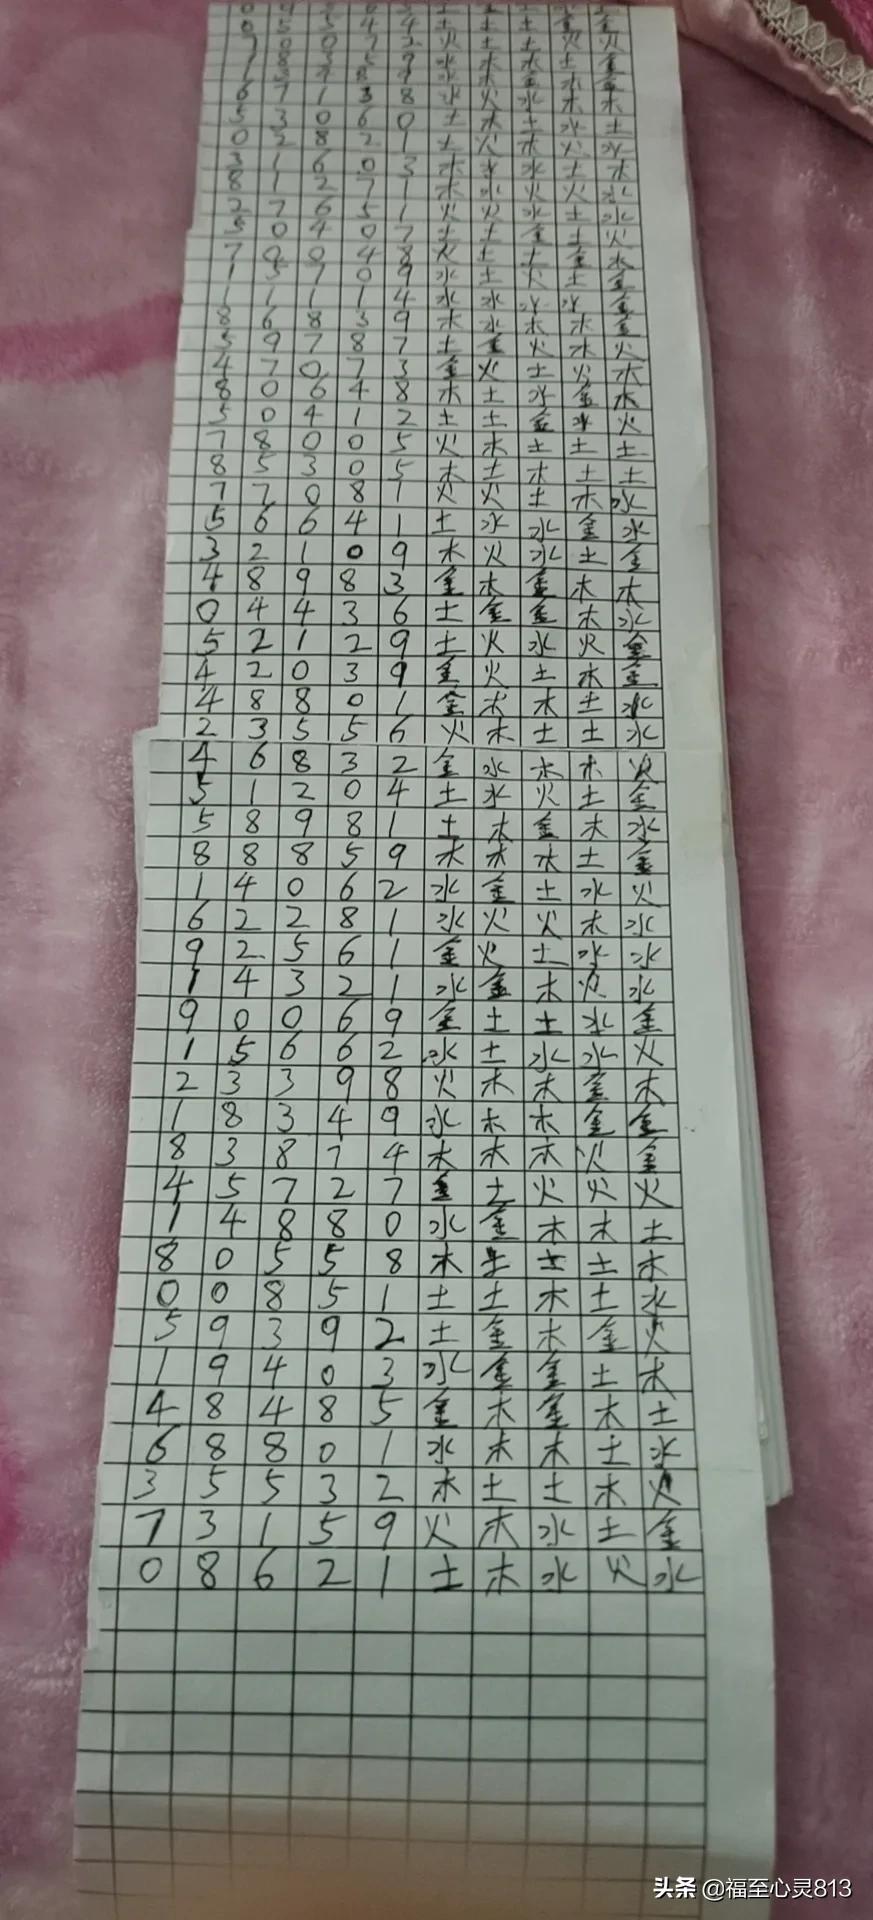 0 5 5 4 4 土 土 土 金 金
7 0 0 7 2 火 土 土 火 火
6 7 1 3 8 水 火 水 木 木
5 3 0 6 0 土 木 土 水 土
0 2 8 2 1 土 火 木 火 水
3 1 6 0 3 木 水 水 土 木
8 1 2 7 1 木 水 火 火 水
2 7 6 5 1 火 火 水 土 水
5 0 4 0 7 土 土 金 土 火
7 0 0 4 8 火 土 土 金 木
1 5 7 0 9 水 土 火 土 金
1 1 1 1 4 水 水 水 水 金
8 6 8 3 9 木 水 木 木 金
5 9 7 8 7 土 金 火 木 火
4 7 0 7 3 金 火 土 火 木
8 0 6 4 8 木 土 水 金 木
5 0 4 1 2 土 土 金 水 火
7 8 0 0 5 火 木 土 土 土
8 5 3 0 5 木 土 木 土 土
7 7 0 8 1 火 火 土 木 水
5 6 6 4 1 土 水 水 金 水
3 2 1 0 9 木 火 水 土 金
4 8 9 8 3 金 木 金 木 木
0 4 4 3 6 土 金 金 木 水
5 2 1 2 9 土 火 水 火 金
4 2 0 3 9 金 火 土 木 金
4 8 8 0 1 金 木 木 土 水
2 3 5 5 6 火 木 土 土 水
4 6 8 3 2 金 水 木 木 火
5 1 2 0 4 土 水 火 土 金
5 8 9 8 1 土 木 金 木 水
8 8 8 5 9 木 木 木 土 金
1 4 0 6 2 水 金 土 水 火
6 2 2 8 1 水 火 火 木 水
9 2 5 6 1 金 火 土 水 水
1 4 3 2 1 水 金 木 火 水
9 0 0 6 9 金 土 土 水 金
1 5 6 6 2 水 土 水 水 火
2 3 3 9 8 火 木 木 金 木
1 8 3 4 9 水 木 木 金 金
8 3 8 7 4 木 木 木 火 金
4 5 7 2 7 金 土 火 火 火
1 4 8 8 0 水 金 木 木 土
8 0 5 5 8 木 土 土 土 木
0 0 8 5 1 土 土 木 土 水
5 9 3 9 2 土 金 木 金 火
1 9 4 0 3 水 金 金 土 木
4 8 4 8 5 金 木 金 木 土
6 8 8 0 1 水 木 木 土 水
3 5 5 3 2 木 土 土 木 火
7 3 1 5 9 火 木 水 土 金
0 8 6 2 1 土 木 水 火 水
头条 @福至心灵813